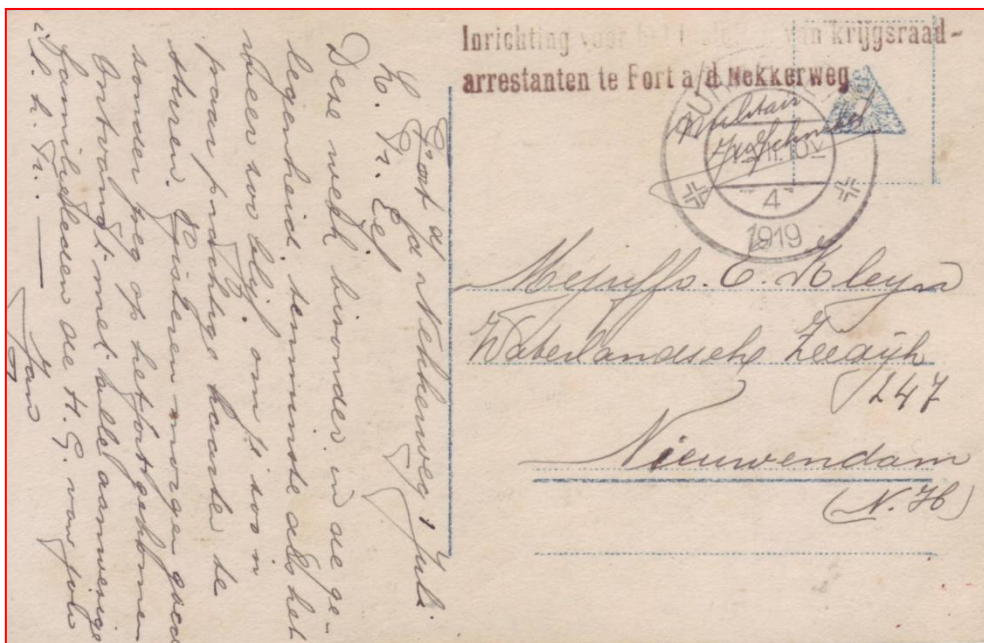 Inrichting voor van krijgsraad-
arrestanten te Fort a/d Nekkerweg
Militair
4
1919
Mejuffr. E. Kleyn
Waterlandsche Zeedijk
247
Nieuwendam
(N. H)
Fort a/d Nekkerweg, Juli.
L. Zr. Eef
Deze week bizonder in de ge-
legenheid, tenminste als het
weer zoo blijf om je zoo'n
paar prachtige kaarte te
sturen. Gisteren morgen goed
zonder pas op het fort gekomen
Ontvangt met alle aanwezige
familieleden de H. G. van jelui
Jan